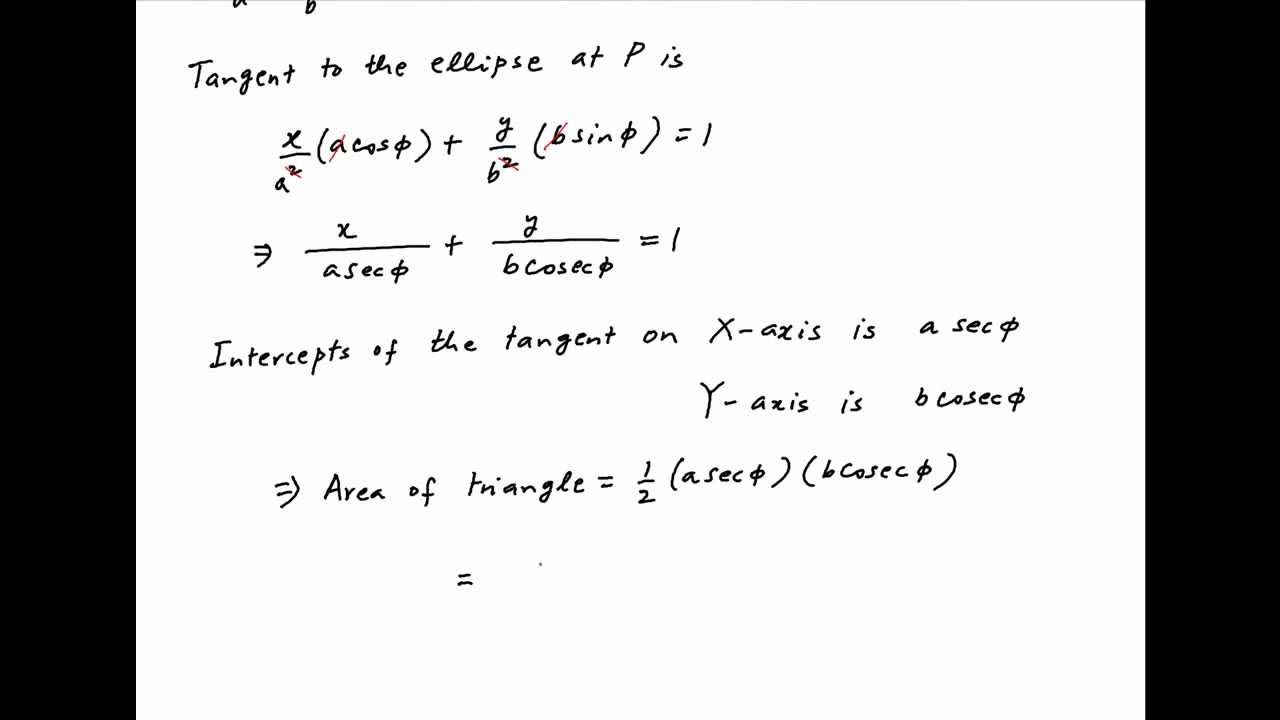 a b
Tangent to the ellipse at P is
x/a² (a cosϕ) + y/b² (b sinϕ) = 1
⇒ x/(a secϕ) + y/(b cosecϕ) = 1
Intercepts of the tangent on X-axis is a secϕ
Y-axis is b cosecϕ
⇒ Area of triangle = 1/2 (a secϕ) (b cosecϕ)
=